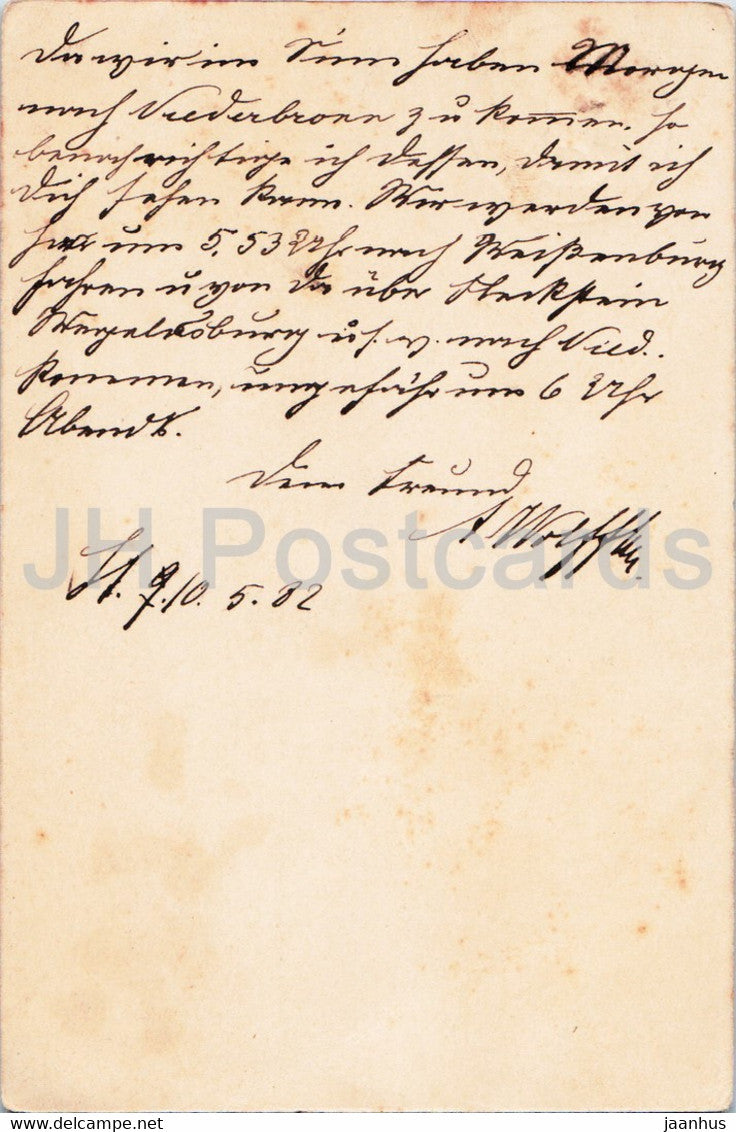 Da wir im Sinn haben Morgen
nach Niederbronn zu kommen, so
benachrichtige ich dessen, damit ich
Dich sehen kann. Wir werden von
hier um 5.53 Uhr nach Weißenburg
fahren u von da über Fleckstein
Wegelnburg u. s. w. nach Nied.
kommen, ungefähr um 6 Uhr
Abends.
Dein Freund
A Wolff
St. 10. 5. 82
JH Postcards
hippostcard.com jaanhus